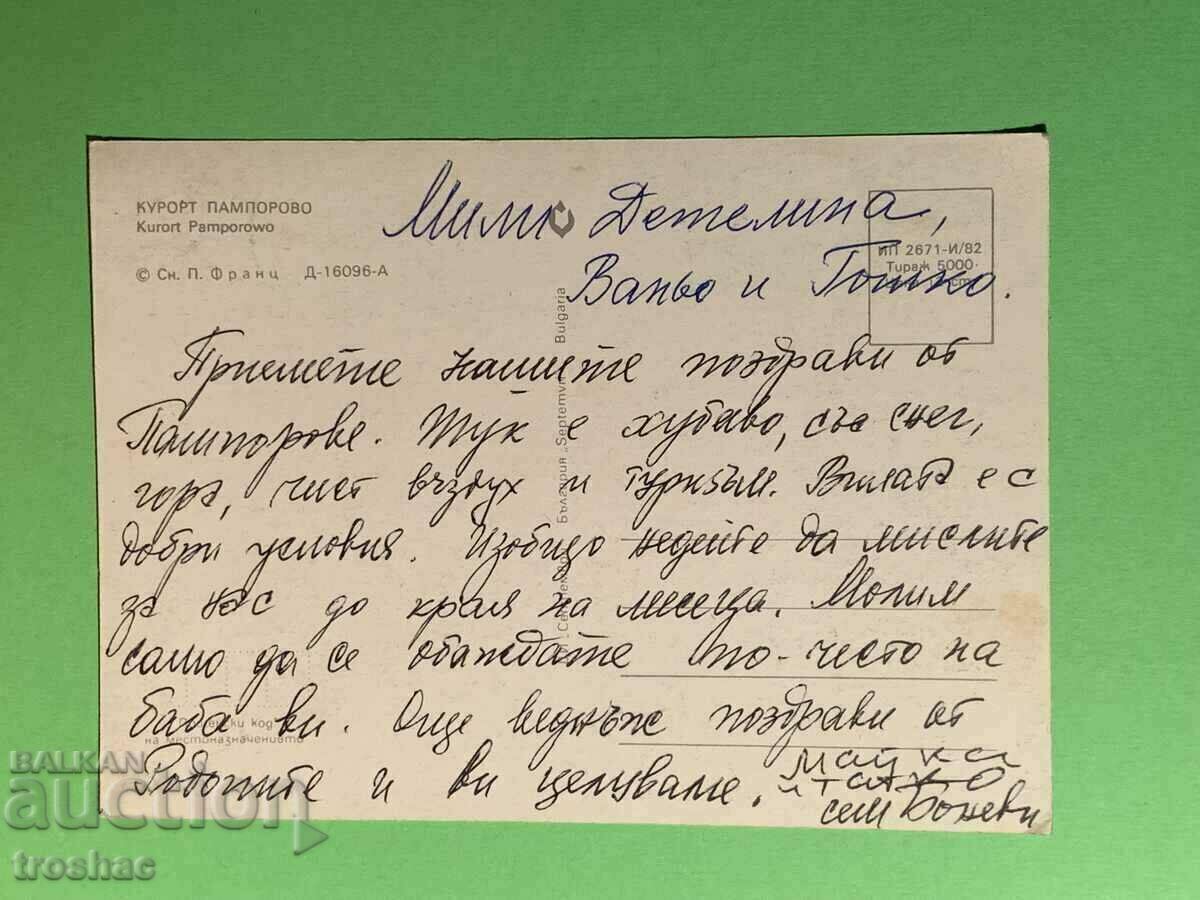 КУРОРТ ПАМПОРОВО
Kurort Pamporowo
© Сн. П. Франц Д-16096-А
ИП 2671-И/82
Тираж 5000
Мими Детелина,
Ваньо и Тошко.
Приемете нашите поздрави от
Пампорово. Тук е хубаво, със снег,
гора, чист въздух и
Вилата е с
добри условия. недейте да мислите
за нас до края на месеца. Молим
само да се обаждате по-често на
баба ви. Още веднъж поздрави от
Родопите и ви целуваме. майка
и татко
сем Боневи
България „Septemvri Bulgaria
код
на местоназначението
BALKAN
auction
troshac